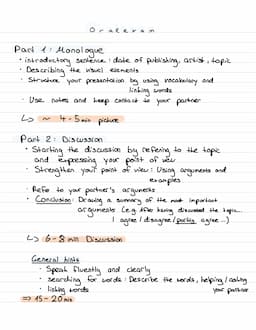 Oralexam
Part 1: Monologue
• introductory sentence: date of publishing, artist, topic
• Describing the visuel elements
• Structure your presentation by using vocabulary and
linking words
• Use notes and keep contact to your partner
↳ ~ 4-5 min picture
Part 2: Discussion
• Starting the discussion by refering to the topic
and expressing your point of view
• Strengthen your point of view: Using arguments and
examples
• Refe to your partner's arguments
• Conclusion: Drawing a summary of the most important
arguments (e.g. After being discussed the topic...
I agree / disagree / partly agree...)
↳ 6-8 min Discussion
General hints
• Speak fluently and clearly
• searching for words: Describe the words, helping / asking
your partner
• linking words
⇒ 15-20 min